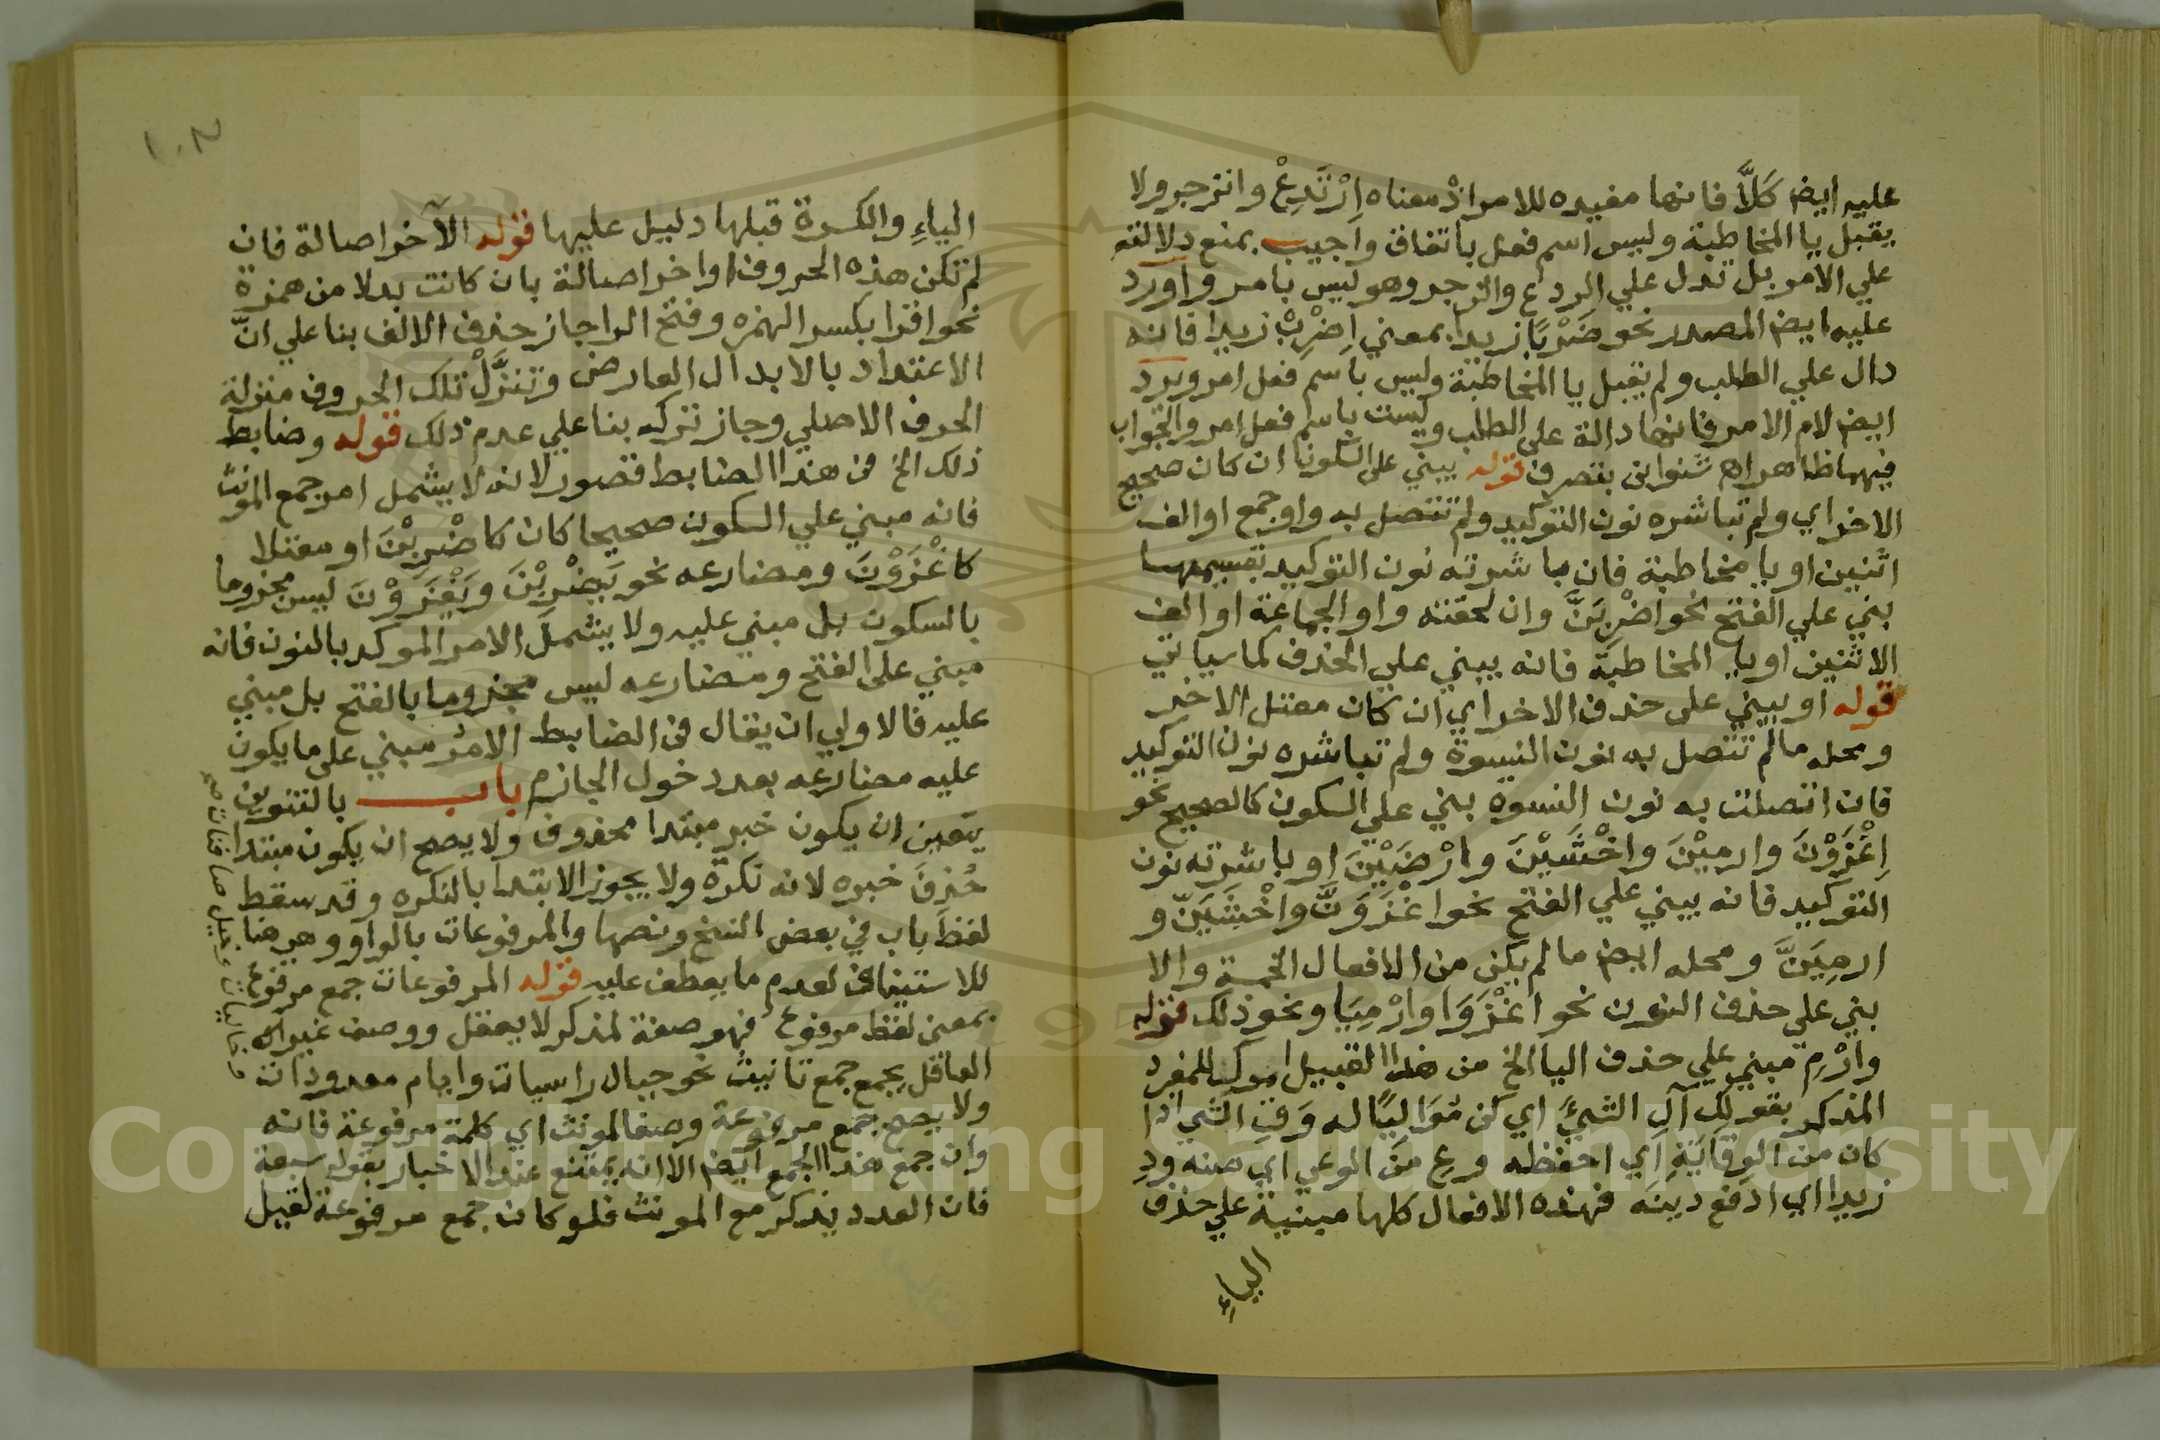 عليه ايض كَلَّا فانها مفيده للامر اذ معناه اِرْتَدِعْ وانزجر ولا
يقبل يا المخاطبة وليس اسم فعل باتفاق واجيب بمنع دلالته
علي الامر بل تدل علي الردع والزجر وهو ليس بامر واورد
عليه ايض المصدر نحو ضَرْبًا زيدا بمعني اِضْرِبْ زيدا فانه
دال علي الطلب ولم يقبل يا المخاطبة وليس باسم فعل امر ويرد
ايض لام الامر فانها دالة على الطلب وليست باسم فعل امر والجواب
فيهما ظاهر اه شنواني بتصرف قوله يبني على السكون ان كان صحيح
الاخر اي ولم تباشره نون التوكيد ولم تتصل به واو جمع او الف
اثنين او يا مخاطبة فان باشرته نون التوكيد بقسيمها
بني علي الفتح نحو اضْرِبَنَّ وان لحقته واو الجماعة او الف
الاثنين او يا المخاطبة فانه يبني علي الحذف كما سياتي
قوله او يبني على حذف الاخر اي ان كان معتل الاخر
ومحله ما لم تتصل به نون النسوة ولم تباشره نون التوكيد
فان اتصلت به نون النسوه بني علي السكون كالصحيح نحو
اِغْزَوْنَ وارمِيْنَ واخْشَيْنَ وارْضَيْنَ او باشرته نون
التوكيد فانه يبني علي الفتح نحو اغْزَوَنَّ واخْشَيَنّ و
ارمِيَنَّ ومحله ايض ما لم يكن من الافعال الخمسة والا
بني علي حذف النون نحو اغْزَوَا وارْمِيَا ونحو ذلك قوله
وارْمِ مبني علي حذف اليا الخ من هذا القبيل امرك للمفرد
المذكر بقولك آلِ الشيءَ اي كن مُوَالِيًا له وَقِ الشي اذا
كان من الوِقَايَةِ اي احفظه وعِ مِنَ الوعي اي صنه ودِ
زيدا اي ادفع دينه فهذه الافعال كلها مبنية علي حذف
الياءِ
١٠٢
الياءِ والكسرة قبلها دليل عليها قوله الآخر اصالة فان
لم تكن هذه الحروف اواخر اصالة بان كانت بدلا من همزة
نحو اقرا بكسر الهمزه وفتح الرا جاز حذف الالف بنا علي انّ
الاعتداد بالابدال العارض وتنزَّلْ تلك الحروف منزلة
الحرف الاصلي وجاز تركه بنا علي عدم ذلك قوله وضابط
ذلك الخ في هذا الضابط قصور لانه لا يشمل امر جمع المونث
فانه مبني علي السكون صحيحا كان كاضْرِبْنَ او معتلا
كاغْزَوْنَ ومضارعه نحو يَضْرِبْنَ وَيَغْزَوْنَ ليس مجزوما
بالسكون بل مبني عليه ولا يشمل الامر الموكد بالنون فانه
مبني على الفتح ومضارعه ليس مجزوما بالفتح بل مبني
عليه فالاولي ان يقال في الضابط الامر مبني على ما يكون
عليه مضارعه بعد دخول الجازم باب بالتنوين
يتعين ان يكون خبر مبتدا محذوف ولا يصح ان يكون مبتدا
حُذِفَ خبره لانه نكرة ولا يجوز الابتدا بالنكره وقد سقط
لفظ باب في بعض النسخ ونصها والمرفوعات بالواو وهي هنا
للاستيناف لعدم ما يعطف عليه قوله المرفوعات جمع مرفوع
بمعني لفظ مرفوع فهو صفة لمذكر لا يعقل ووصف غير
العاقل يجمع جمع تانيث نحو جبال راسيات وايام معدودات
ولا يصح جمع مرفوعة وصفا لمونث اي كلمة مرفوعة فانه
وان جمع هذا الجمع ايض الا انه يمتنع عند الاخبار بقوله سبعة
فان العدد يذكر مع المونث فلو كان جمع مرفوعة لقيل
Copyright © King Saud University
1957